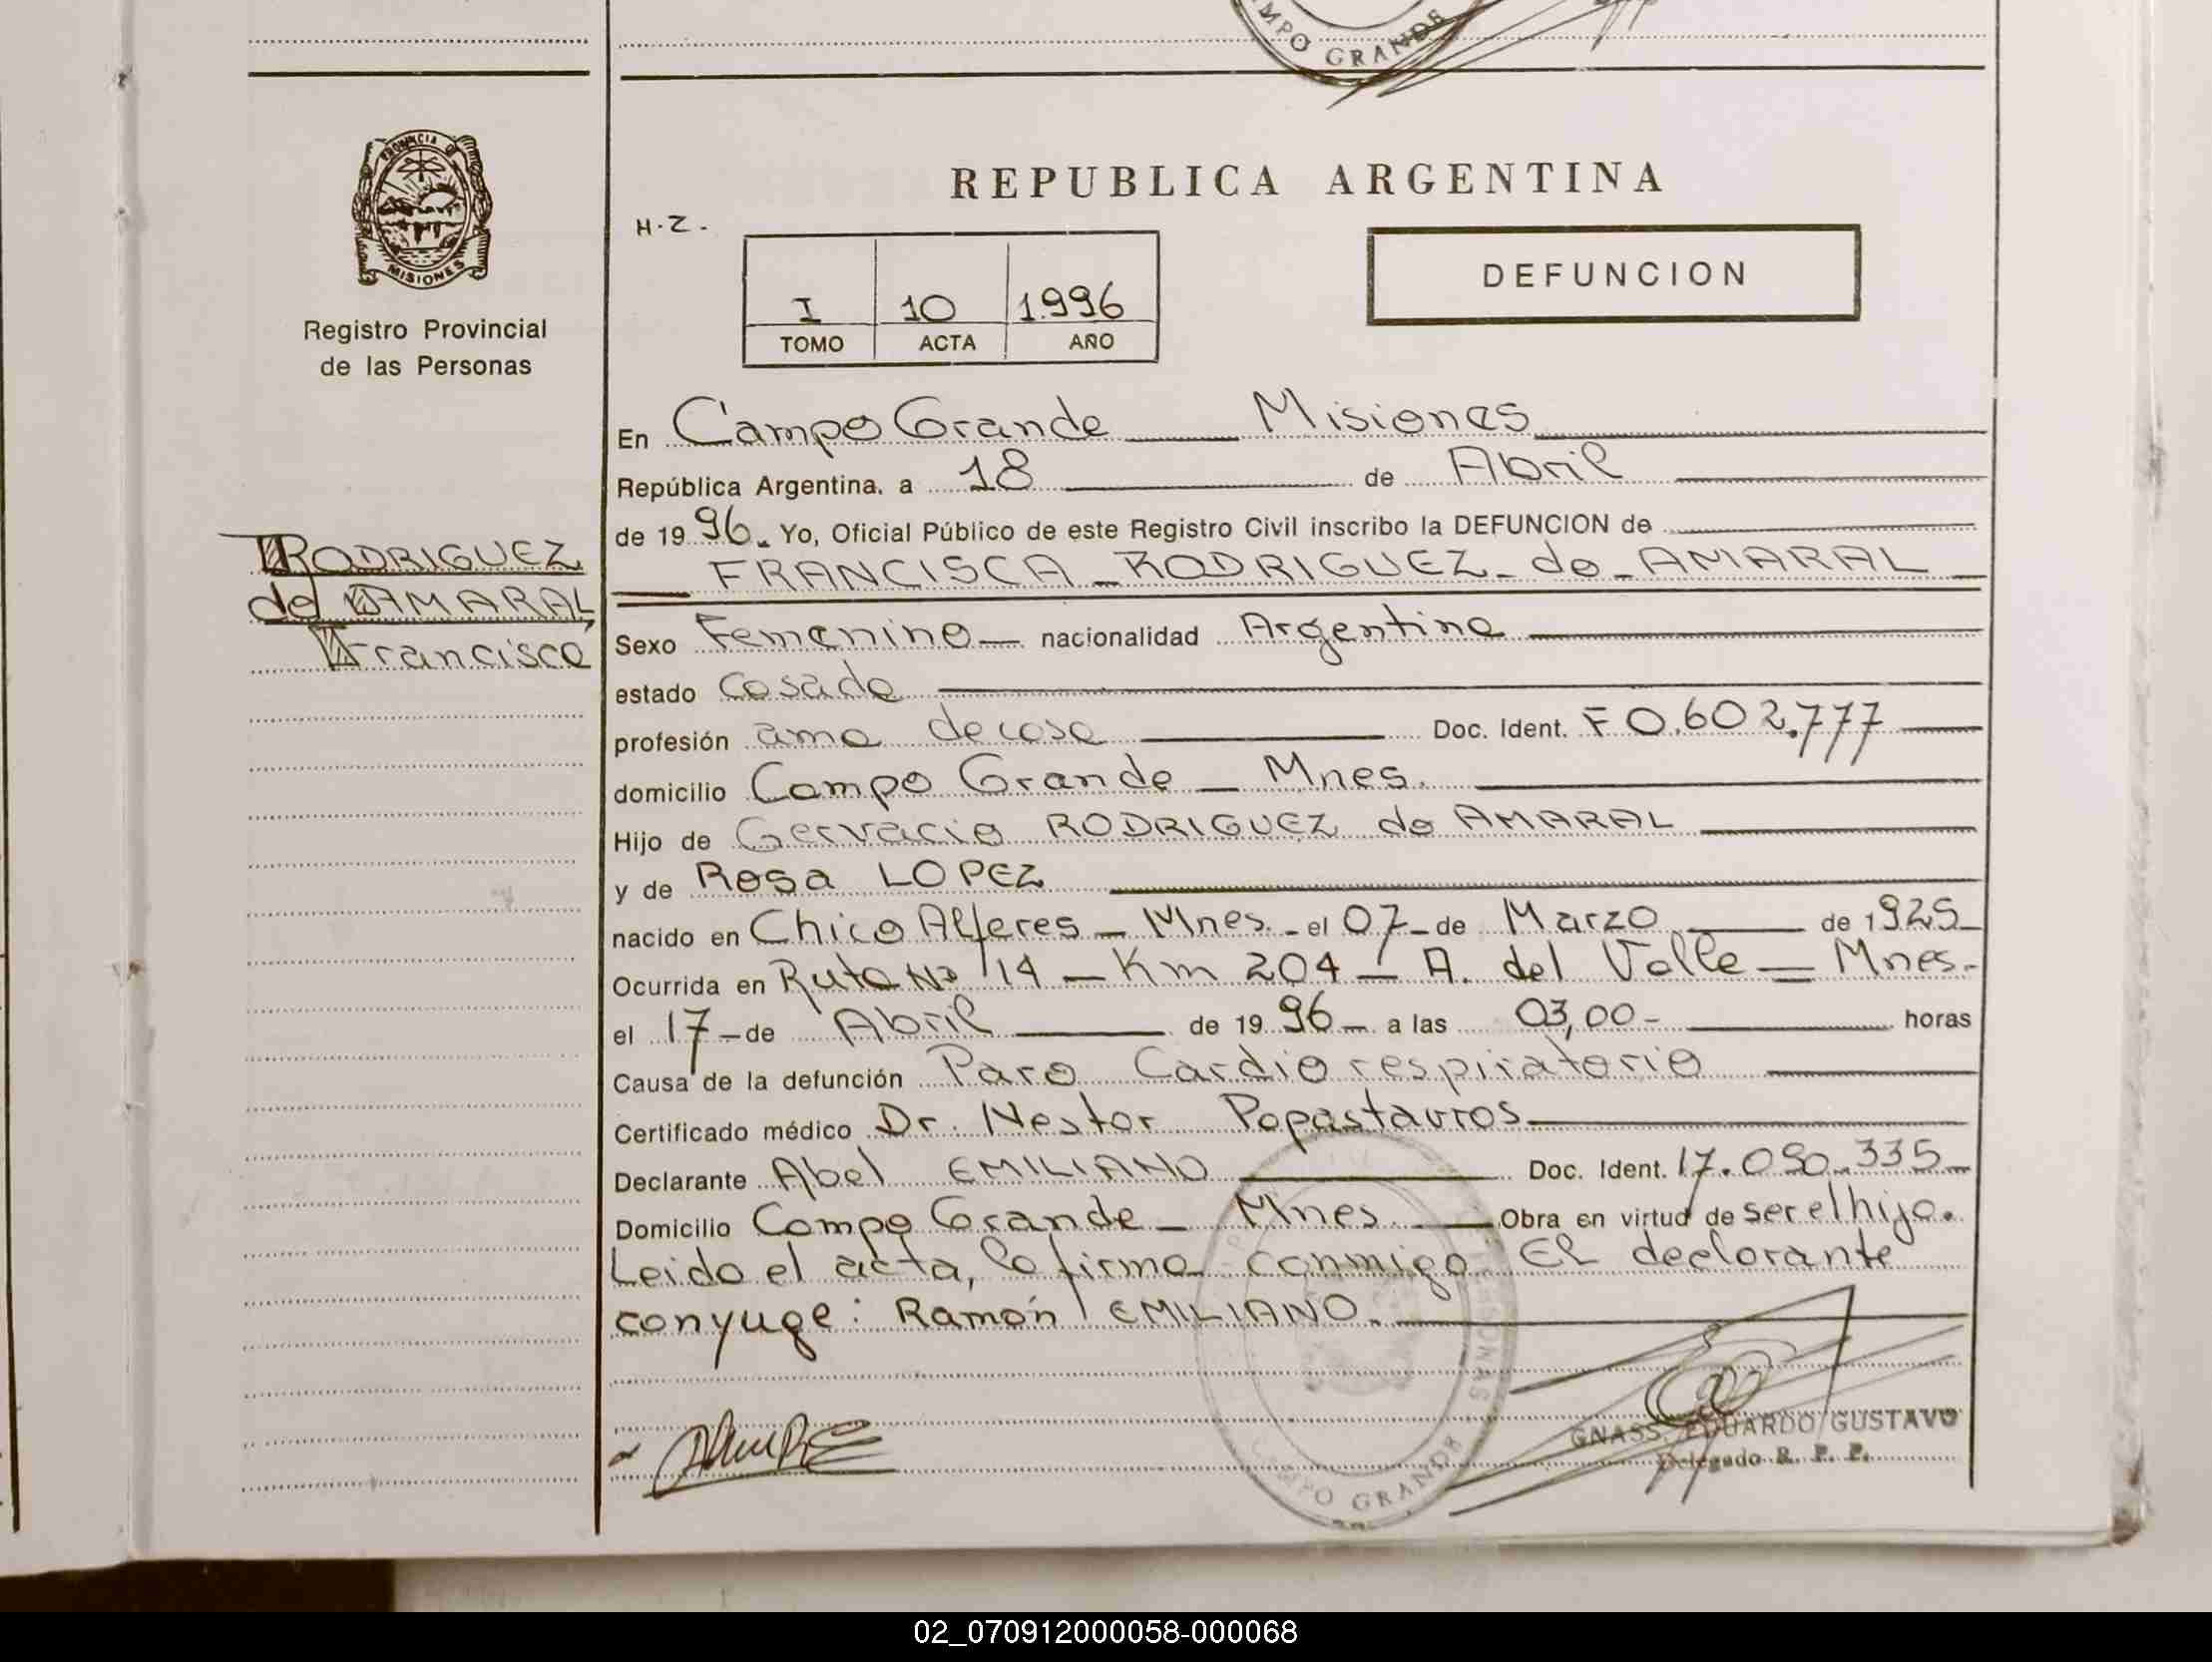 MPO GRANDE
PROVINCIA DE
MISIONES
Registro Provincial
de las Personas
REPUBLICA ARGENTINA
H.Z.
DEFUNCION
I 10 1.996
TOMO ACTA AÑO
En Campo Grande Misiones
República Argentina, a 18 de Abril
de 1996. Yo, Oficial Público de este Registro Civil inscribo la DEFUNCION de
FRANCISCA RODRIGUEZ do AMARAL
RODRIGUEZ
do AMARAL,
Francisca
Sexo Femenino nacionalidad Argentina
estado casada
profesión ama de casa Doc. Ident. F 0.602.777
domicilio Campo Grande - Mnes.
Hijo de Gervacio RODRIGUEZ do AMARAL
y de Rosa LOPEZ
nacido en Chico Alferes - Mnes. - el 07 - de Marzo de 1925
Ocurrida en Ruta Nº 14 - Km 204 - A. del Valle - Mnes.-
el 17 - de Abril de 1996 - a las 03,00 - horas
Causa de la defunción Paro Cardio respiratorio
Certificado médico Dr. Nestor Popastavros
Declarante Abel EMILIANO Doc. Ident. 17.090.335
Domicilio Campo Grande - Mnes. Obra en virtud de ser el hijo.
Leido el acta, la firma conmigo El declarante
conyuge: Ramón EMILIANO.
GNASS, EDUARDO GUSTAVO
Delegado R. P. P.
CAMPO GRANDE
02_070912000058-000068